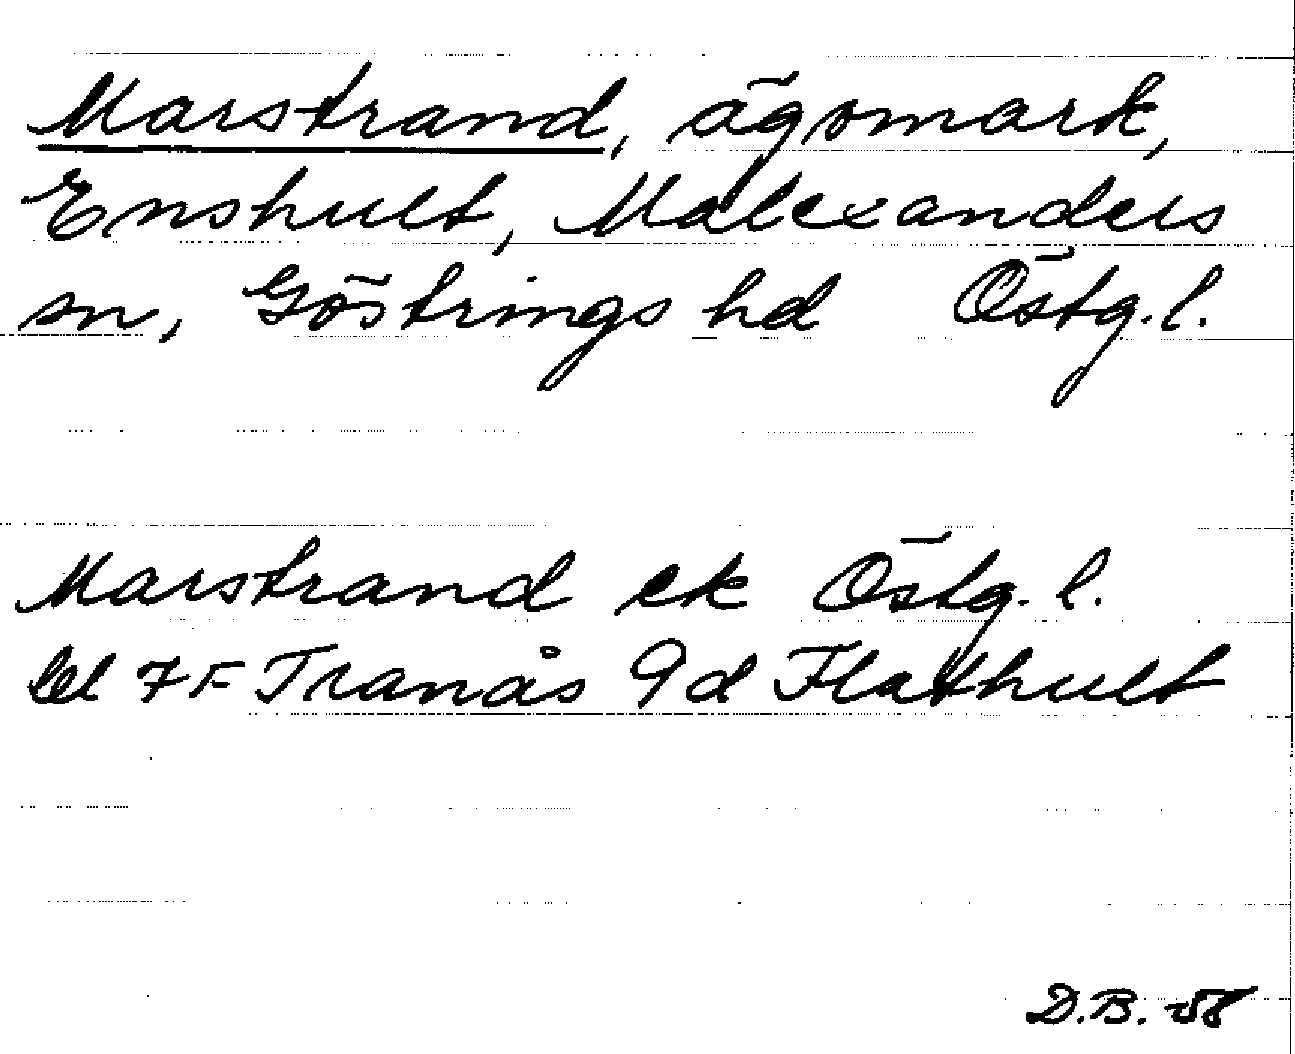 Marstrand, ägomark,
Enshult, Malexanders
sn, Göstrings hd Östg.l.
Marstrand ek Östg.l.
bl 7F Tranås 9d Flathult
D.B. -58